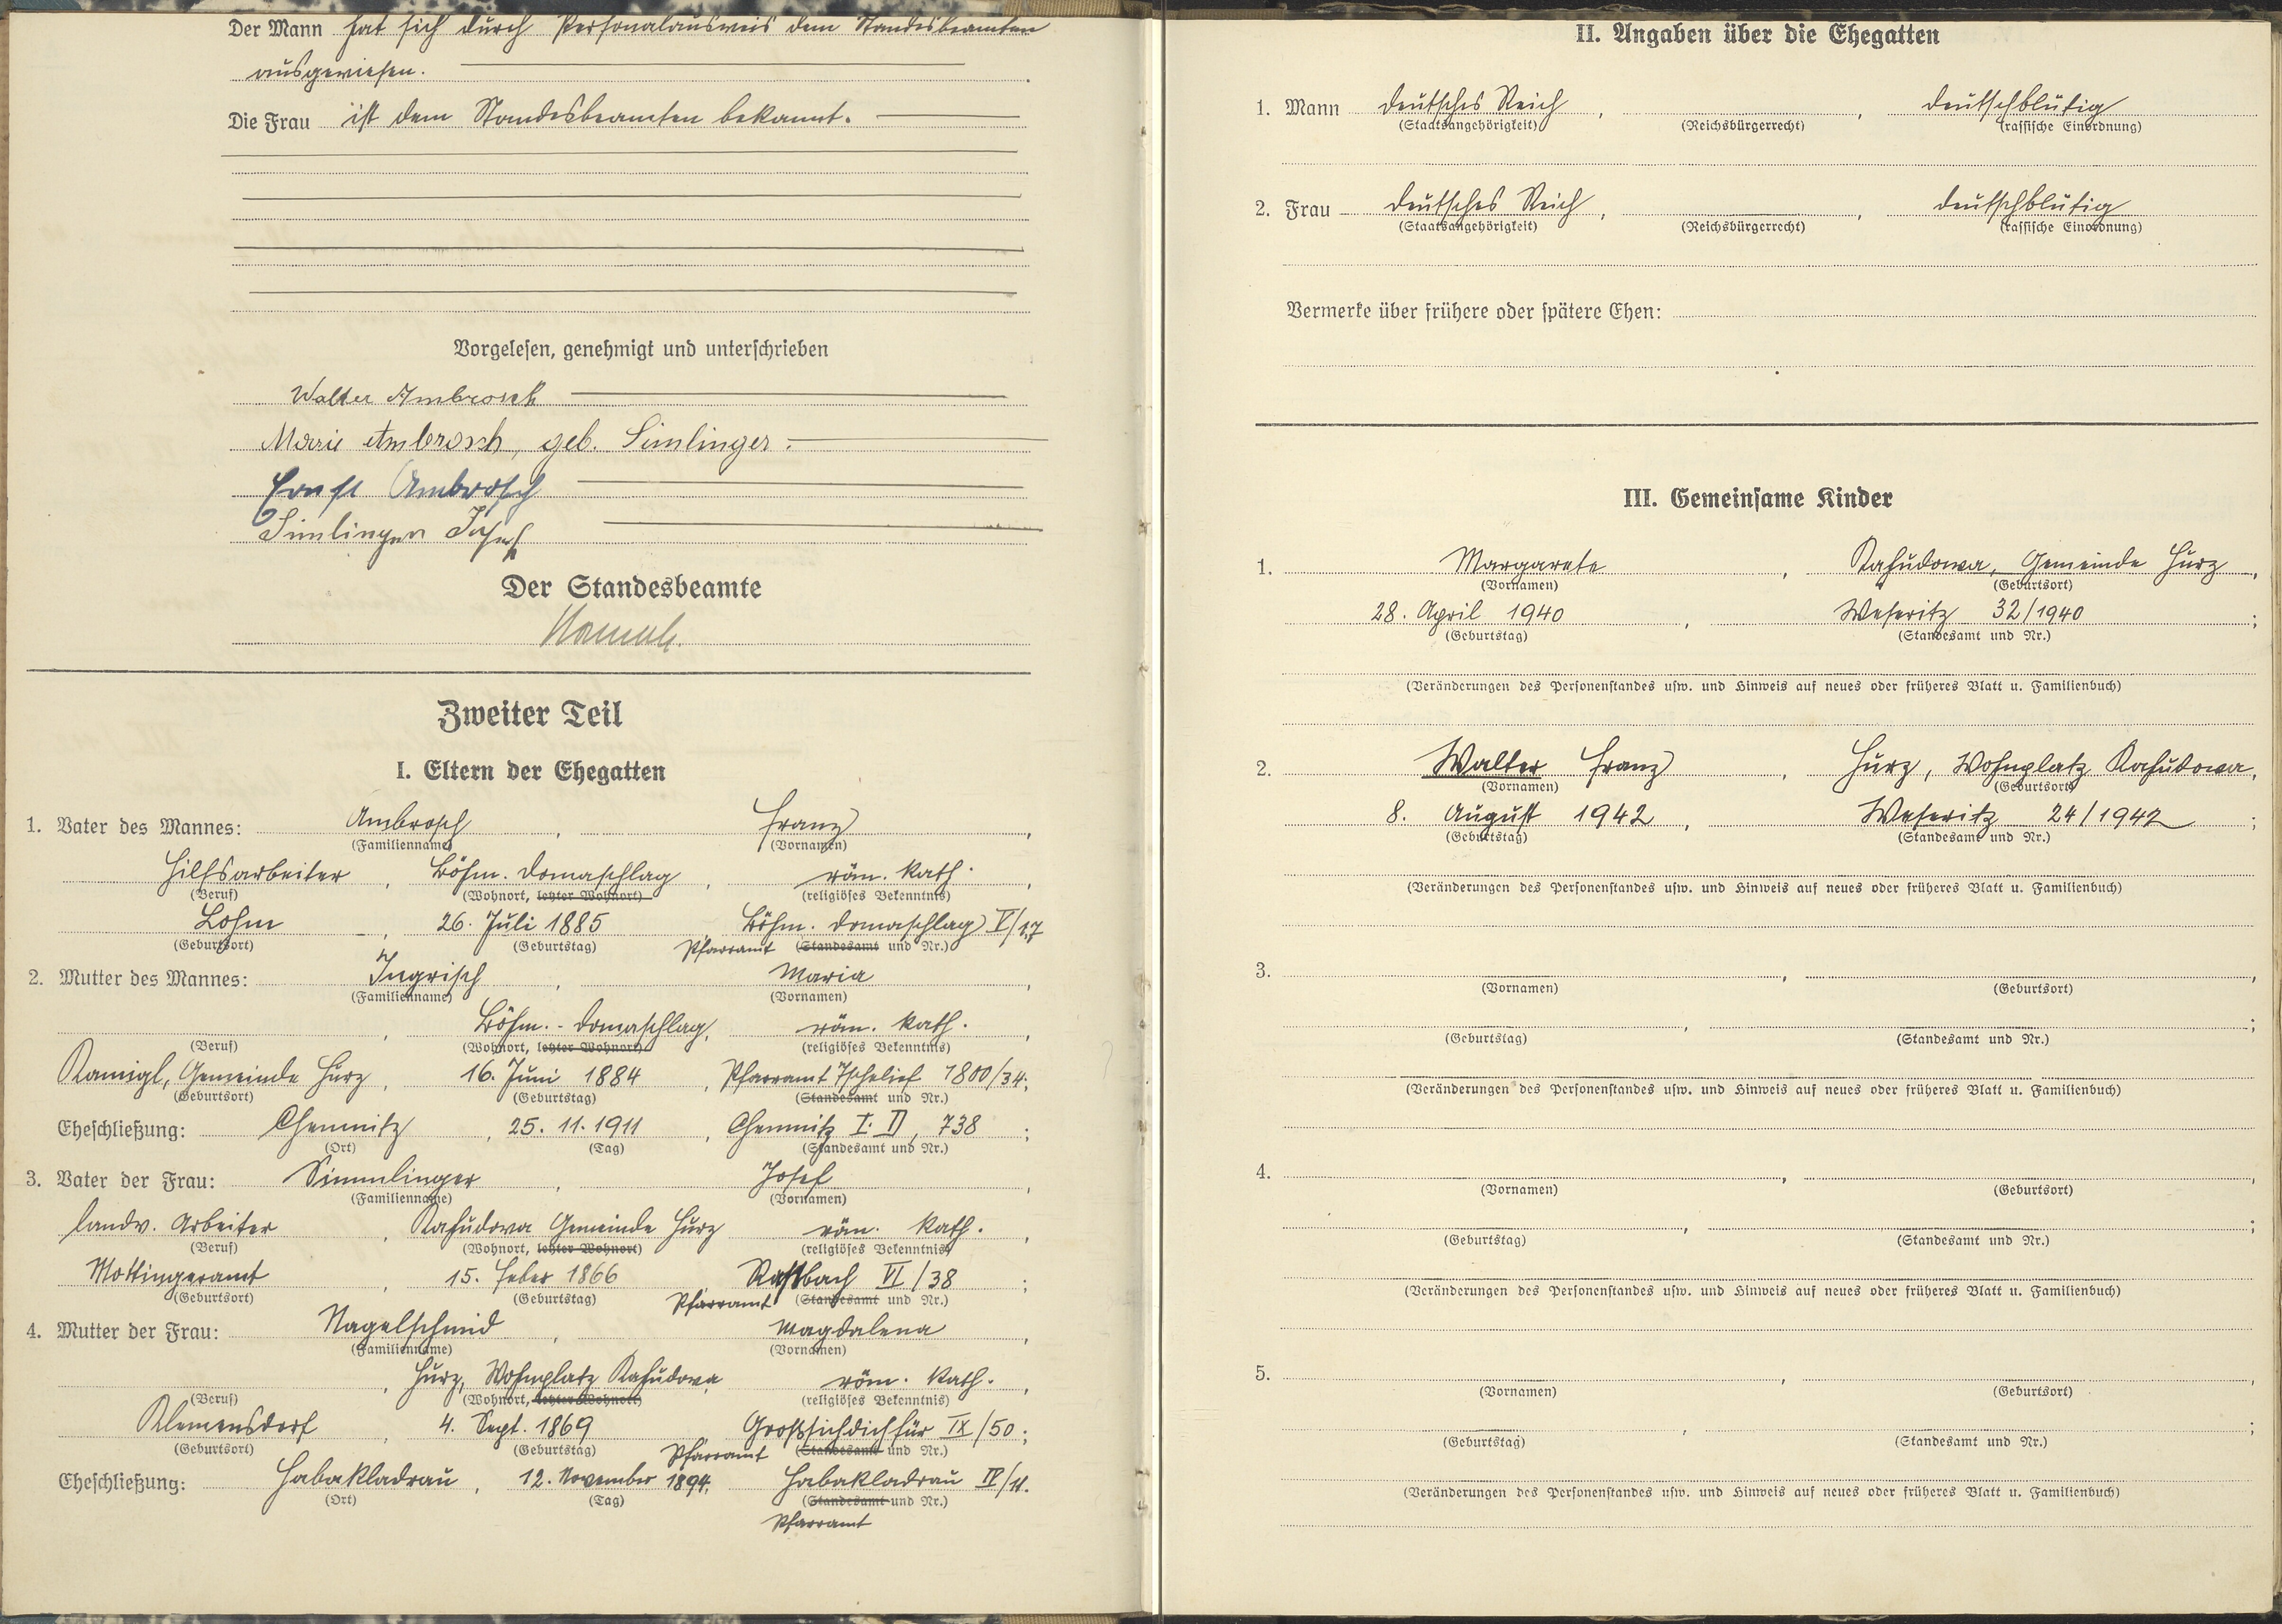 Der Mann hat sich durch Personalausweis dem Standesbeamten
ausgewiesen.
Die Frau ist dem Standesbeamten bekannt.
Vorgelesen, genehmigt und unterschrieben
Walter Ambrosch
Marie Ambrosch, geb. Simlinger.
Ernst Ambrosch
Simlinger Josef
Der Standesbeamte
Zweiter Teil
I. Eltern der Ehegatten
1. Vater des Mannes: Ambrosch, Franz,
(Familienname) (Vornamen)
Hilfsarbeiter, Böhm. Domaschlag, röm. kath.,
(Beruf) (Wohnort, letzter Wohnort) (religiöses Bekenntnis)
Lohm, 26. Juli 1885 Böhm. Domaschlag V/17
(Geburtsort) (Geburtstag) Pfarramt (Standesamt und Nr.)
2. Mutter des Mannes: Ingrisch, Maria,
(Familienname) (Vornamen)
, Böhm.-Domaschlag, röm. kath.,
(Beruf) (Wohnort, letzter Wohnort) (religiöses Bekenntnis)
Ramigl, Gemeinde Hurz, 16. Juni 1884, Pfarramt Tschelief 1800/34;
(Geburtsort) (Geburtstag) (Standesamt und Nr.)
Eheschließung: Chemnitz, 25. 11. 1911, Chemnitz I, 738;
(Ort) (Tag) (Standesamt und Nr.)
3. Vater der Frau: Simmlinger, Josef,
(Familienname) (Vornamen)
landw. Arbeiter, Rahudowa Gemeinde Hurz röm. kath.,
(Beruf) (Wohnort, letzter Wohnort) (religiöses Bekenntnis)
Mottingeramt, 15. Feber 1866 VI/38;
(Geburtsort) (Geburtstag) Pfarramt (Standesamt und Nr.)
4. Mutter der Frau: Nagelschmid, Magdalena,
(Familienname) (Vornamen)
, Hurz, Wohnplatz Rahudowa röm. kath.,
(Beruf) (Wohnort, letzter Wohnort) (religiöses Bekenntnis)
Klemensdorf, 4. Sept. 1869 Großsichdichfür IX/50;
(Geburtsort) (Geburtstag) Pfarramt (Standesamt und Nr.)
Eheschließung: Habakladrau, 12. November 1894, Habakladrau IV/11.
(Ort) (Tag) (Standesamt und Nr.)
Pfarramt
II. Angaben über die Ehegatten
1. Mann deutsches Reich, , deutschblütig
(Staatsangehörigkeit) (Reichsbürgerrecht) (rassische Einordnung)
2. Frau deutsches Reich, , deutschblütig
(Staatsangehörigkeit) (Reichsbürgerrecht) (rassische Einordnung)
Vermerke über frühere oder spätere Ehen:
III. Gemeinsame Kinder
1. Margarete, Rahudowa, Gemeinde Hurz,
(Vornamen) (Geburtsort)
28. April 1940, Weseritz 32/1940;
(Geburtstag) (Standesamt und Nr.)
(Veränderungen des Personenstandes usw. und Hinweis auf neues oder früheres Blatt u. Familienbuch)
2. Walter Franz, Hurz, Wohnplatz Rahudowa,
(Vornamen) (Geburtsort)
8. August 1942, Weseritz 24/1942;
(Geburtstag) (Standesamt und Nr.)
(Veränderungen des Personenstandes usw. und Hinweis auf neues oder früheres Blatt u. Familienbuch)
3. , ,
(Vornamen) (Geburtsort)
, ;
(Geburtstag) (Standesamt und Nr.)
(Veränderungen des Personenstandes usw. und Hinweis auf neues oder früheres Blatt u. Familienbuch)
4. , ,
(Vornamen) (Geburtsort)
, ;
(Geburtstag) (Standesamt und Nr.)
(Veränderungen des Personenstandes usw. und Hinweis auf neues oder früheres Blatt u. Familienbuch)
5. , ,
(Vornamen) (Geburtsort)
, ;
(Geburtstag) (Standesamt und Nr.)
(Veränderungen des Personenstandes usw. und Hinweis auf neues oder früheres Blatt u. Familienbuch)